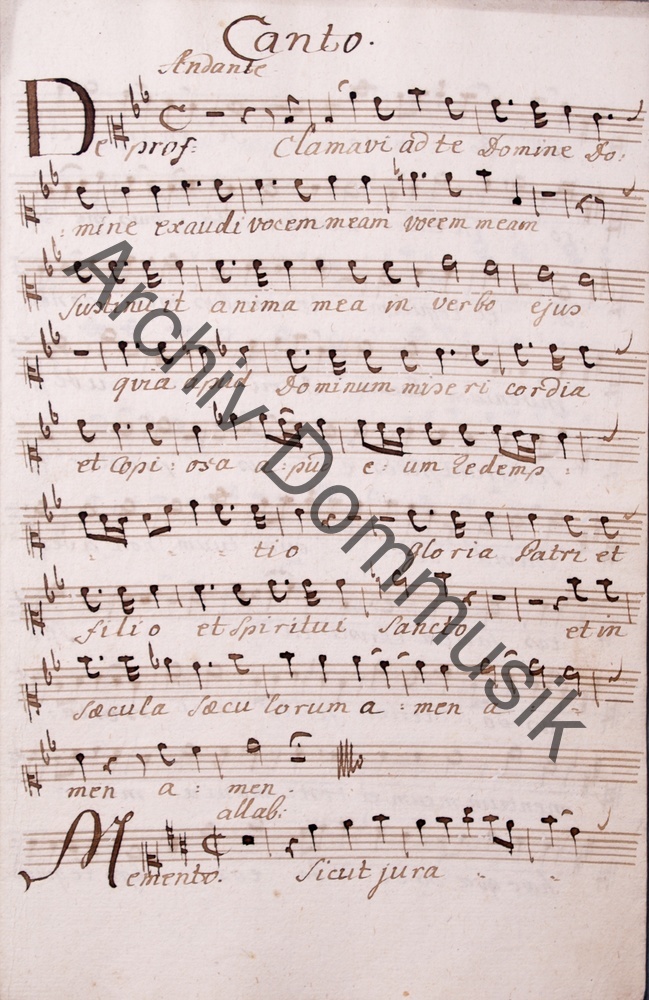 Canto.
Andante
De prof: Clamavi ad te Domine Do:
: mine exaudi vocem meam vocem meam
Sustinuit anima mea in verbo ejus
quia apud Dominum miseri cordia
et Copi : osa a : pud e : um Redemp :
tio Gloria Patri et
filio et Spiritui Sancto et in
sæcula sæcu lorum a : men a :
men a : men.
allab:
Memento. Sicut jura
Archiv Dommusik